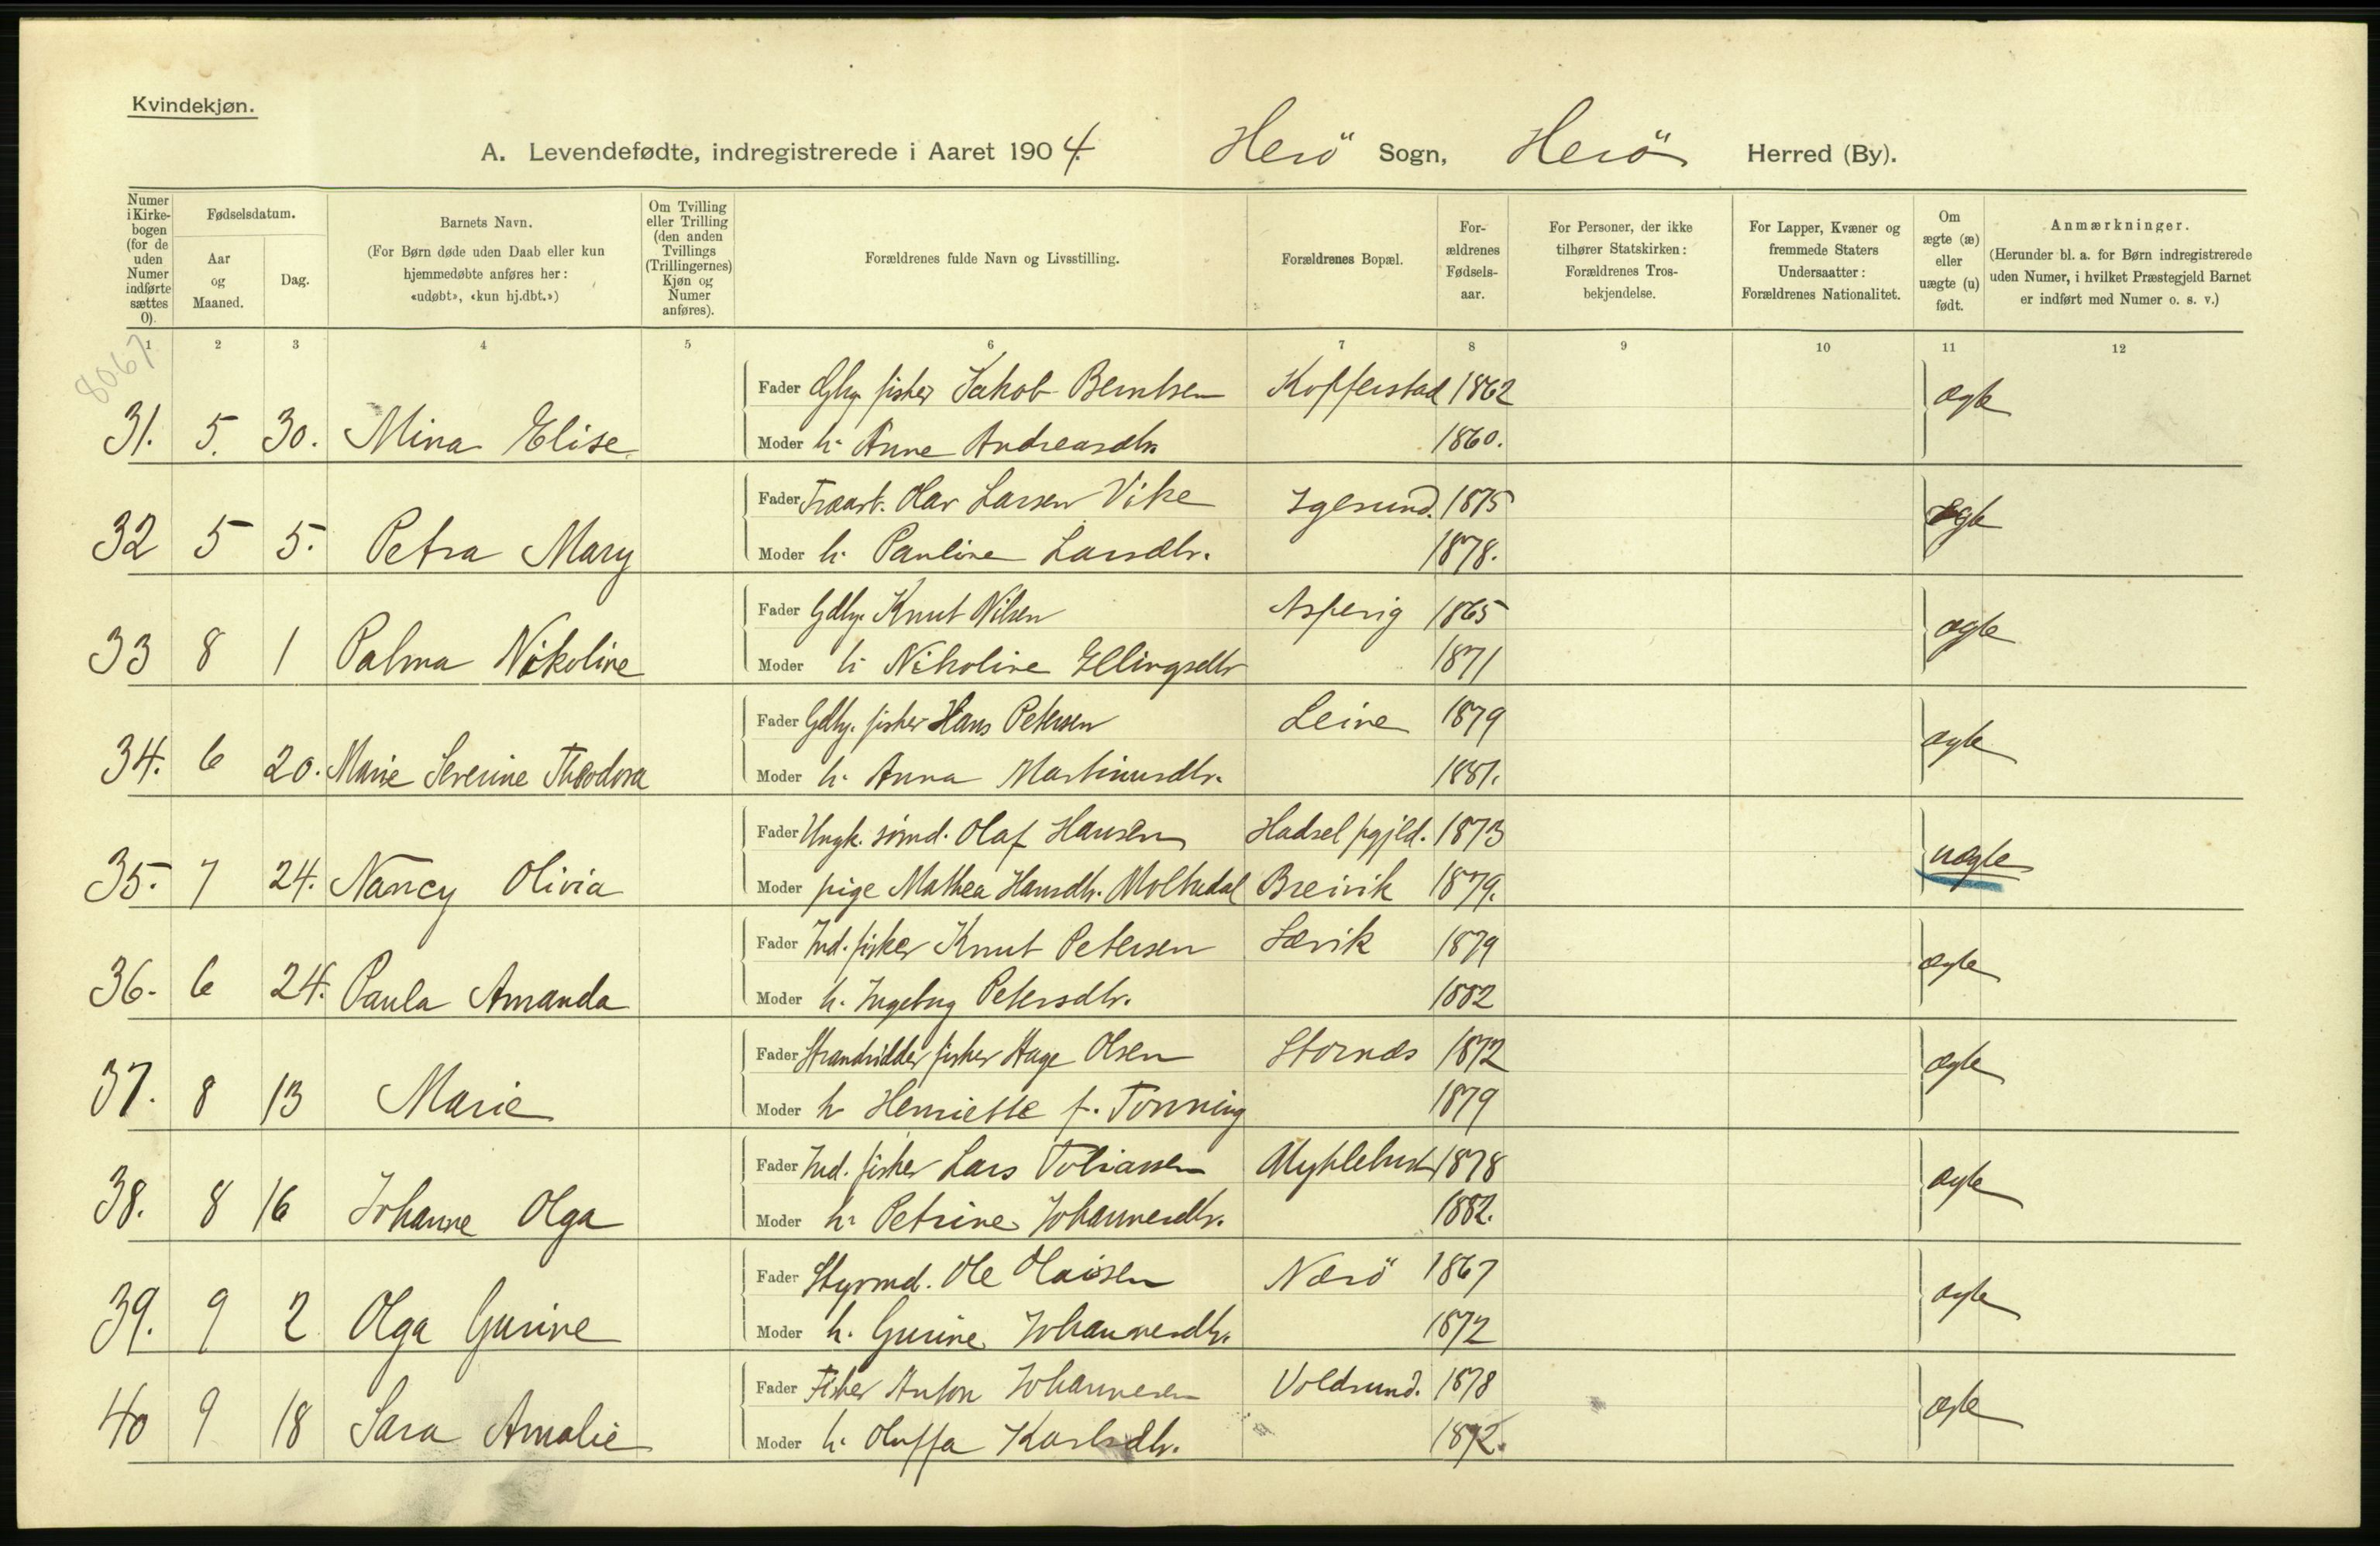 Kvindekjøn.
A. Levendefødte, indregistrerede i Aaret 1904. Herö Sogn, Herö Herred (By).
Numer i Kirke-bogen (for de uden Numer indførte sættes 0).
Fødselsdatum.
Aar og Maaned.
Dag.
Barnets Navn.
(For Børn døde uden Daab eller kun hjemmedøbte anføres her: «udøbt», «kun hj.dbt.»)
Om Tvilling eller Trilling (den anden Tvillings (Trillingernes) Kjøn og Numer anføres).
Forældrenes fulde Navn og Livsstilling.
Forældrenes Bopæl.
For-ældrenes Fødsels-aar.
For Personer, der ikke tilhører Statskirken: Forældrenes Tros-bekjendelse.
For Lapper, Kvæner og fremmede Staters Undersaatter: Forældrenes Nationalitet.
Om ægte (æ) eller uægte (u) født.
Anmærkninger.
(Herunder bl. a. for Børn indregistrerede uden Numer, i hvilket Præstegjeld Barnet er indført med Numer o. s. v.)
1 2 3 4 5 6 7 8 9 10 11 12
8067
Fader Gbr. fisker Jakob Berntsen Kopperstad 1862 ægte
31. 5. 30. Mina Elise Moder h. Anne Andreasdtr. 1860.
Fader Olav Larsen Vike Igesund. 1875 ægte
32 5 5. Petra Mary Moder h. Pauline Larsdtr. 1878.
Fader Gdbr. Knut Nilsen Aspevig 1865 ægte
33 8 1 Palma Nikoline Moder h. Nikoline Ellingsdtr 1871
Fader Gdbr. fisker Hans Petersen Leine 1879 ægte
34. 6 20. Marie Severine Theodora Moder h. Anna Martinusdtr. 1881.
Fader Ungk. sømd. Olaf Hansen Hadsel pgjld. 1873 uægte
35. 7 24. Nancy Olivia Moder pige Mathea Hansdtr. Moltudal Breivik 1879.
Fader Ind. fisker Knut Petersen Sævik 1879 ægte
36. 6 24. Paula Amanda Moder h. Ingebrg Petersdtr. 1882
Fader Strandsidder fisker Hage Olsen Stornæs 1872 ægte
37. 8 13 Marie Moder h. Henriette f. Tonning 1879
Fader Ind. fisker Lars Tobiassen Myklebust 1878 ægte
38. 8 16 Johanne Olga Moder h. Petrine Johannesdtr. 1882.
Fader Styrmd. Ole Olaisen Nærö 1867 ægte
39. 9 2 Olga Gurine Moder h. Gurine Johannesdtr. 1872
Fader Fisker Anton Johannesen Voldsund. 1878 ægte
40 9 18 Sara Amalie Moder h. Oluffa Karlsdtr. 1872.